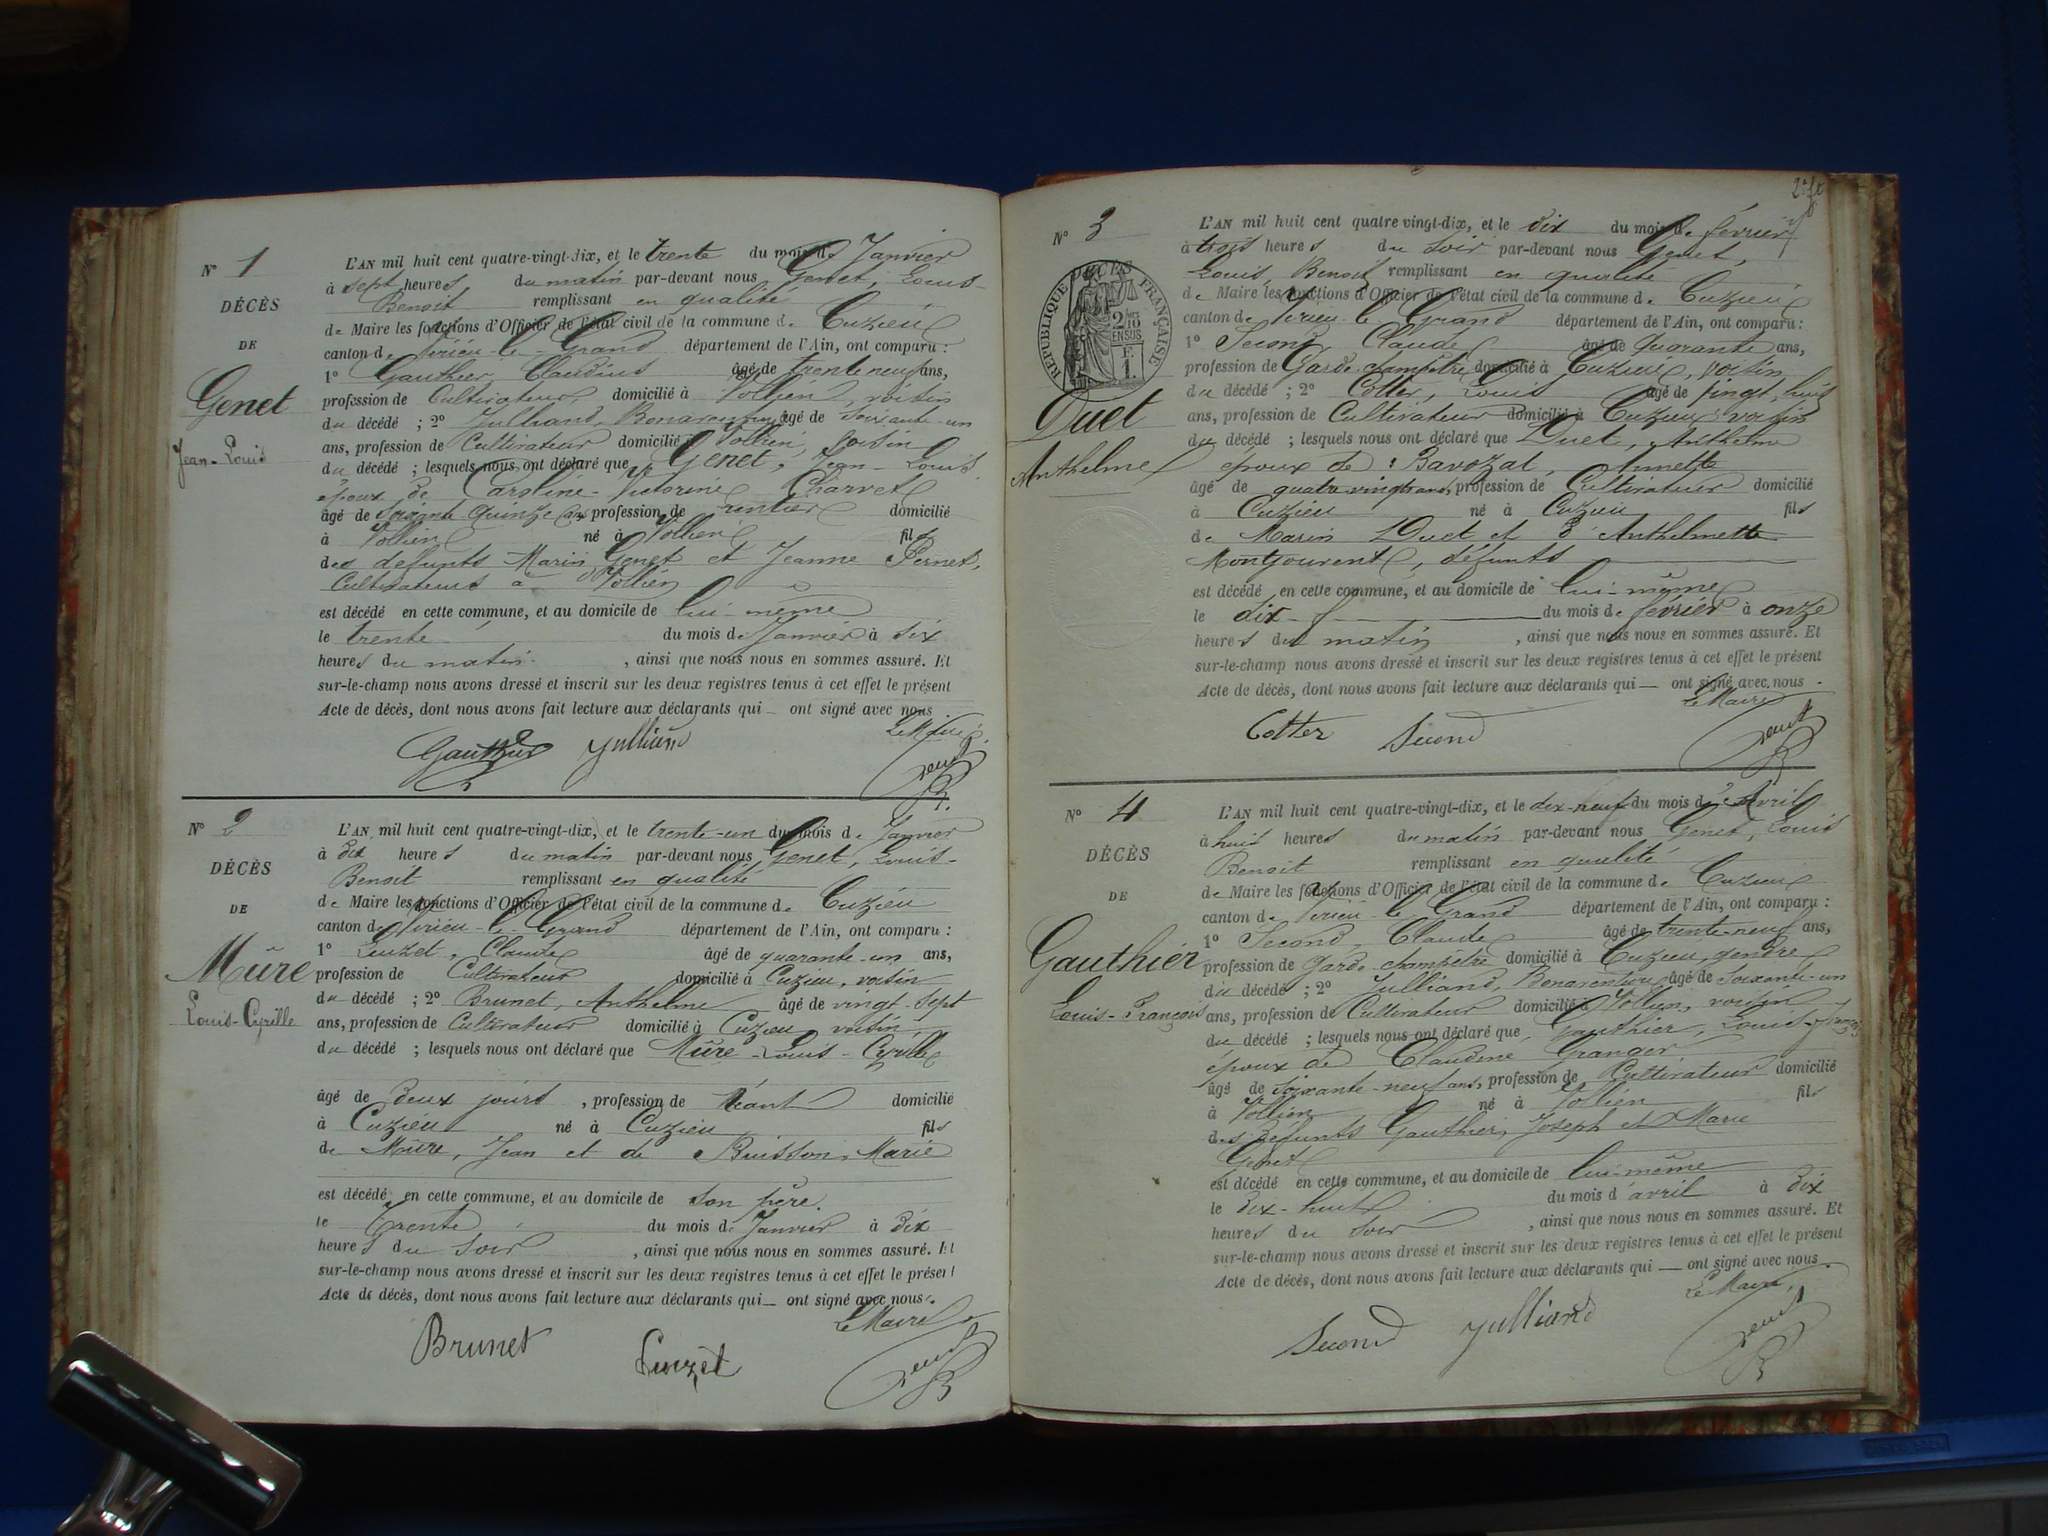 N° 1
DÉCÈS
DE
Genet
Jean-Louis
L'AN mil huit cent quatre-vingt-dix, et le trente du mois de Janvier
à sept heures du matin par-devant nous Genet, Louis-
Benoit remplissant en qualité
de Maire les fonctions d'Officier de l'état civil de la commune de Cuzieu
canton de Virieu-le-Grand département de l'Ain, ont comparu :
1° Gauthier, Claudius âgé de trente neuf ans,
profession de Cultivateur domicilié à Vollien, voisin
du décédé ; 2° Julliand, Bonaventure âgé de soixante-un
ans, profession de Cultivateur domicilié à Vollien, voisin
du décédé ; lesquels nous ont déclaré que Genet, Jean-Louis
époux de Caroline-Victorine Charvet
âgé de soixante quinze ans profession de rentier domicilié
à Vollien né à Vollien fils
des défunts Marin Genet et Jeanne Pernet,
Cultivateurs à Vollien
est décédé en cette commune, et au domicile de lui-même
le trente du mois de Janvier à six
heures du matin , ainsi que nous nous en sommes assuré. Et
sur-le-champ nous avons dressé et inscrit sur les deux registres tenus à cet effet le présent
Acte de décès, dont nous avons fait lecture aux déclarants qui — ont signé avec nous
Le Maire
Gauthier Julliand Genet
N° 2
DÉCÈS
DE
Mûre
Louis-Cyrille
L'AN mil huit cent quatre-vingt-dix, et le trente-un du mois de Janvier
à dix heures du matin par-devant nous Genet, Louis-
Benoit remplissant en qualité
de Maire les fonctions d'Officier de l'état civil de la commune de Cuzieu
canton de Virieu-le-Grand département de l'Ain, ont comparu :
1° Luzet, Claude âgé de quarante-un ans,
profession de Cultivateur domicilié à Cuzieu, voisin
du décédé ; 2° Brunet, Anthelme âgé de vingt-sept
ans, profession de Cultivateur domicilié à Cuzieu voisin
du décédé ; lesquels nous ont déclaré que Mûre-Louis-Cyrille
âgé de deux jours , profession de Néant domicilié
à Cuzieu né à Cuzieu fils
de Mûre, Jean et de Buisson, Marie
est décédé en cette commune, et au domicile de son père.
le trente du mois de Janvier à dix
heures du soir , ainsi que nous nous en sommes assuré. Et
sur-le-champ nous avons dressé et inscrit sur les deux registres tenus à cet effet le présent
Acte de décès, dont nous avons fait lecture aux déclarants qui — ont signé avec nous.
Le Maire
Brunet Luzet Genet
N° 3
DÉCÈS
RÉPUBLIQUE FRANÇAISE
Duet
Anthelme
L'AN mil huit cent quatre vingt-dix, et le dix du mois de février
à trois heures du soir par-devant nous Genet,
Louis, Benoit remplissant en qualité
de Maire les fonctions d'Officier de l'état civil de la commune de Cuzieu
canton de Virieu-le-Grand département de l'Ain, ont comparu :
1° Second, Claude âgé de quarante ans,
profession de Garde champêtre domicilié à Cuzieu, voisin
du décédé ; 2° Cotter, Louis âgé de vingt, huit
ans, profession de Cultivateur domicilié à Cuzieu voisin
du décédé ; lesquels nous ont déclaré que Duet, Anthelme
époux de : Bavozat, Annette
âgé de quatre vingt ans, profession de Cultivateur domicilié
à Cuzieu né à Cuzieu fils
de Marin Duet et d'Anthelmette
Montgourent, défunts
est décédé en cette commune, et au domicile de lui-même
le dix du mois de février à onze
heures du matin , ainsi que nous nous en sommes assuré. Et
sur-le-champ nous avons dressé et inscrit sur les deux registres tenus à cet effet le présent
Acte de décès, dont nous avons fait lecture aux déclarants qui — ont signé avec nous.
Le Maire
Cotter Second Genet
N° 4
DÉCÈS
DE
Gauthier
Louis-François
L'AN mil huit cent quatre-vingt-dix, et le dix-neuf du mois d'Avril
à huit heures du matin par-devant nous Genet, Louis
Benoit remplissant en qualité
de Maire les fonctions d'Officier de l'état civil de la commune de Cuzieu
canton de Virieu-le-Grand département de l'Ain, ont comparu :
1° Second, Claude âgé de trente-neuf ans,
profession de garde-champêtre domicilié à Cuzieu, gendre
du décédé ; 2° Julliand, Bonaventure âgé de soixante-un
ans, profession de Cultivateur domicilié à Vollien, voisin
du décédé ; lesquels nous ont déclaré que Gauthier, Louis-François
époux de Claudine Granger
âgé de soixante-neuf ans, profession de Cultivateur domicilié
à Vollien né à Vollien fils
des défunts Gauthier, Joseph et Marie
Genet
est décédé en cette commune, et au domicile de lui-même
le dix-huit du mois d'avril à dix
heures du soir , ainsi que nous nous en sommes assuré. Et
sur-le-champ nous avons dressé et inscrit sur les deux registres tenus à cet effet le présent
Acte de décès, dont nous avons fait lecture aux déclarants qui — ont signé avec nous.
Le Maire,
Second Julliand Genet